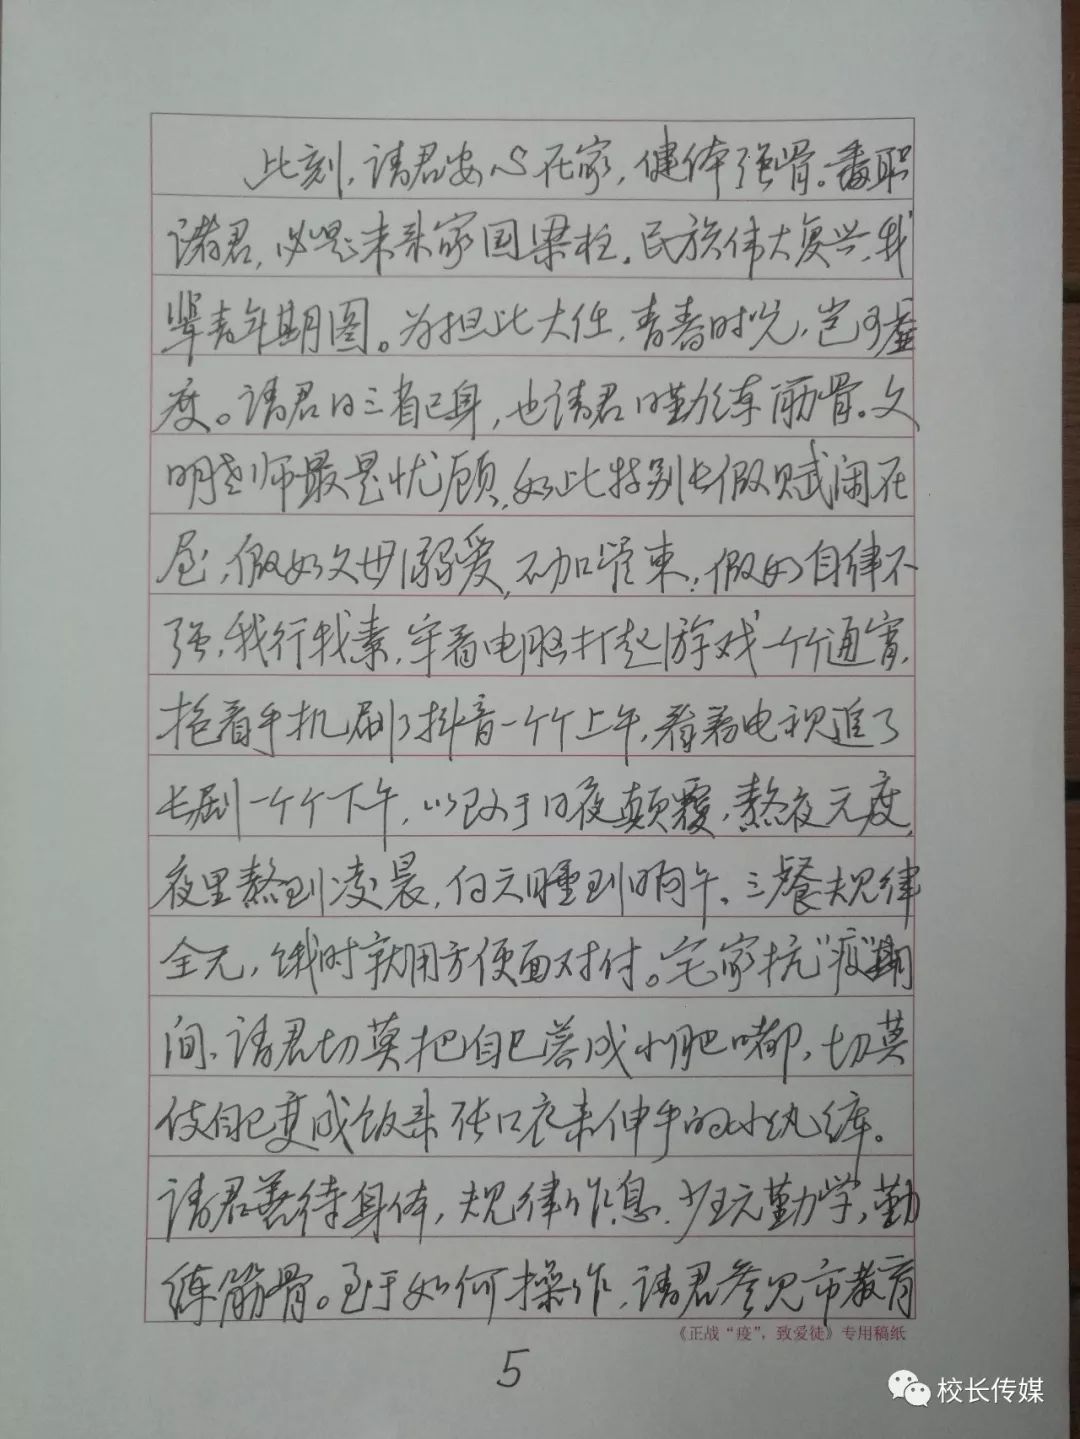 此刻，请君安心在家，健体强骨。番职
诸君，必是未来家国梁柱。民族伟大复兴，我
辈青年期图。为担此大任，青春时光，岂可虚
度。请君日三省己身，也请君日勤练筋骨。文
明老师最是忧顾，如此特别长假赋闲在
屋，假如父母溺爱，不加管束；假如自律不
强，我行我素，牢着电脑打起游戏一个个通宵，
抱着手机刷了抖音一个个上午，看着电视追了
长剧一个个下午，以致于日夜颠覆，熬夜无度，
夜里熬到凌晨，白天睡到晌午，三餐规律
全无，饿时就用方便面对付。宅家抗“疫”期
间，请君切莫把自己养成小肥嘟，切莫
使自己变成饭来张口衣来伸手的小纨绔。
请君善待身体，规律作息，少玩勤学，勤
练筋骨。至于如何操作，请君参见市教育
《正战“疫”，致爱徒》专用稿纸
5
校长传媒